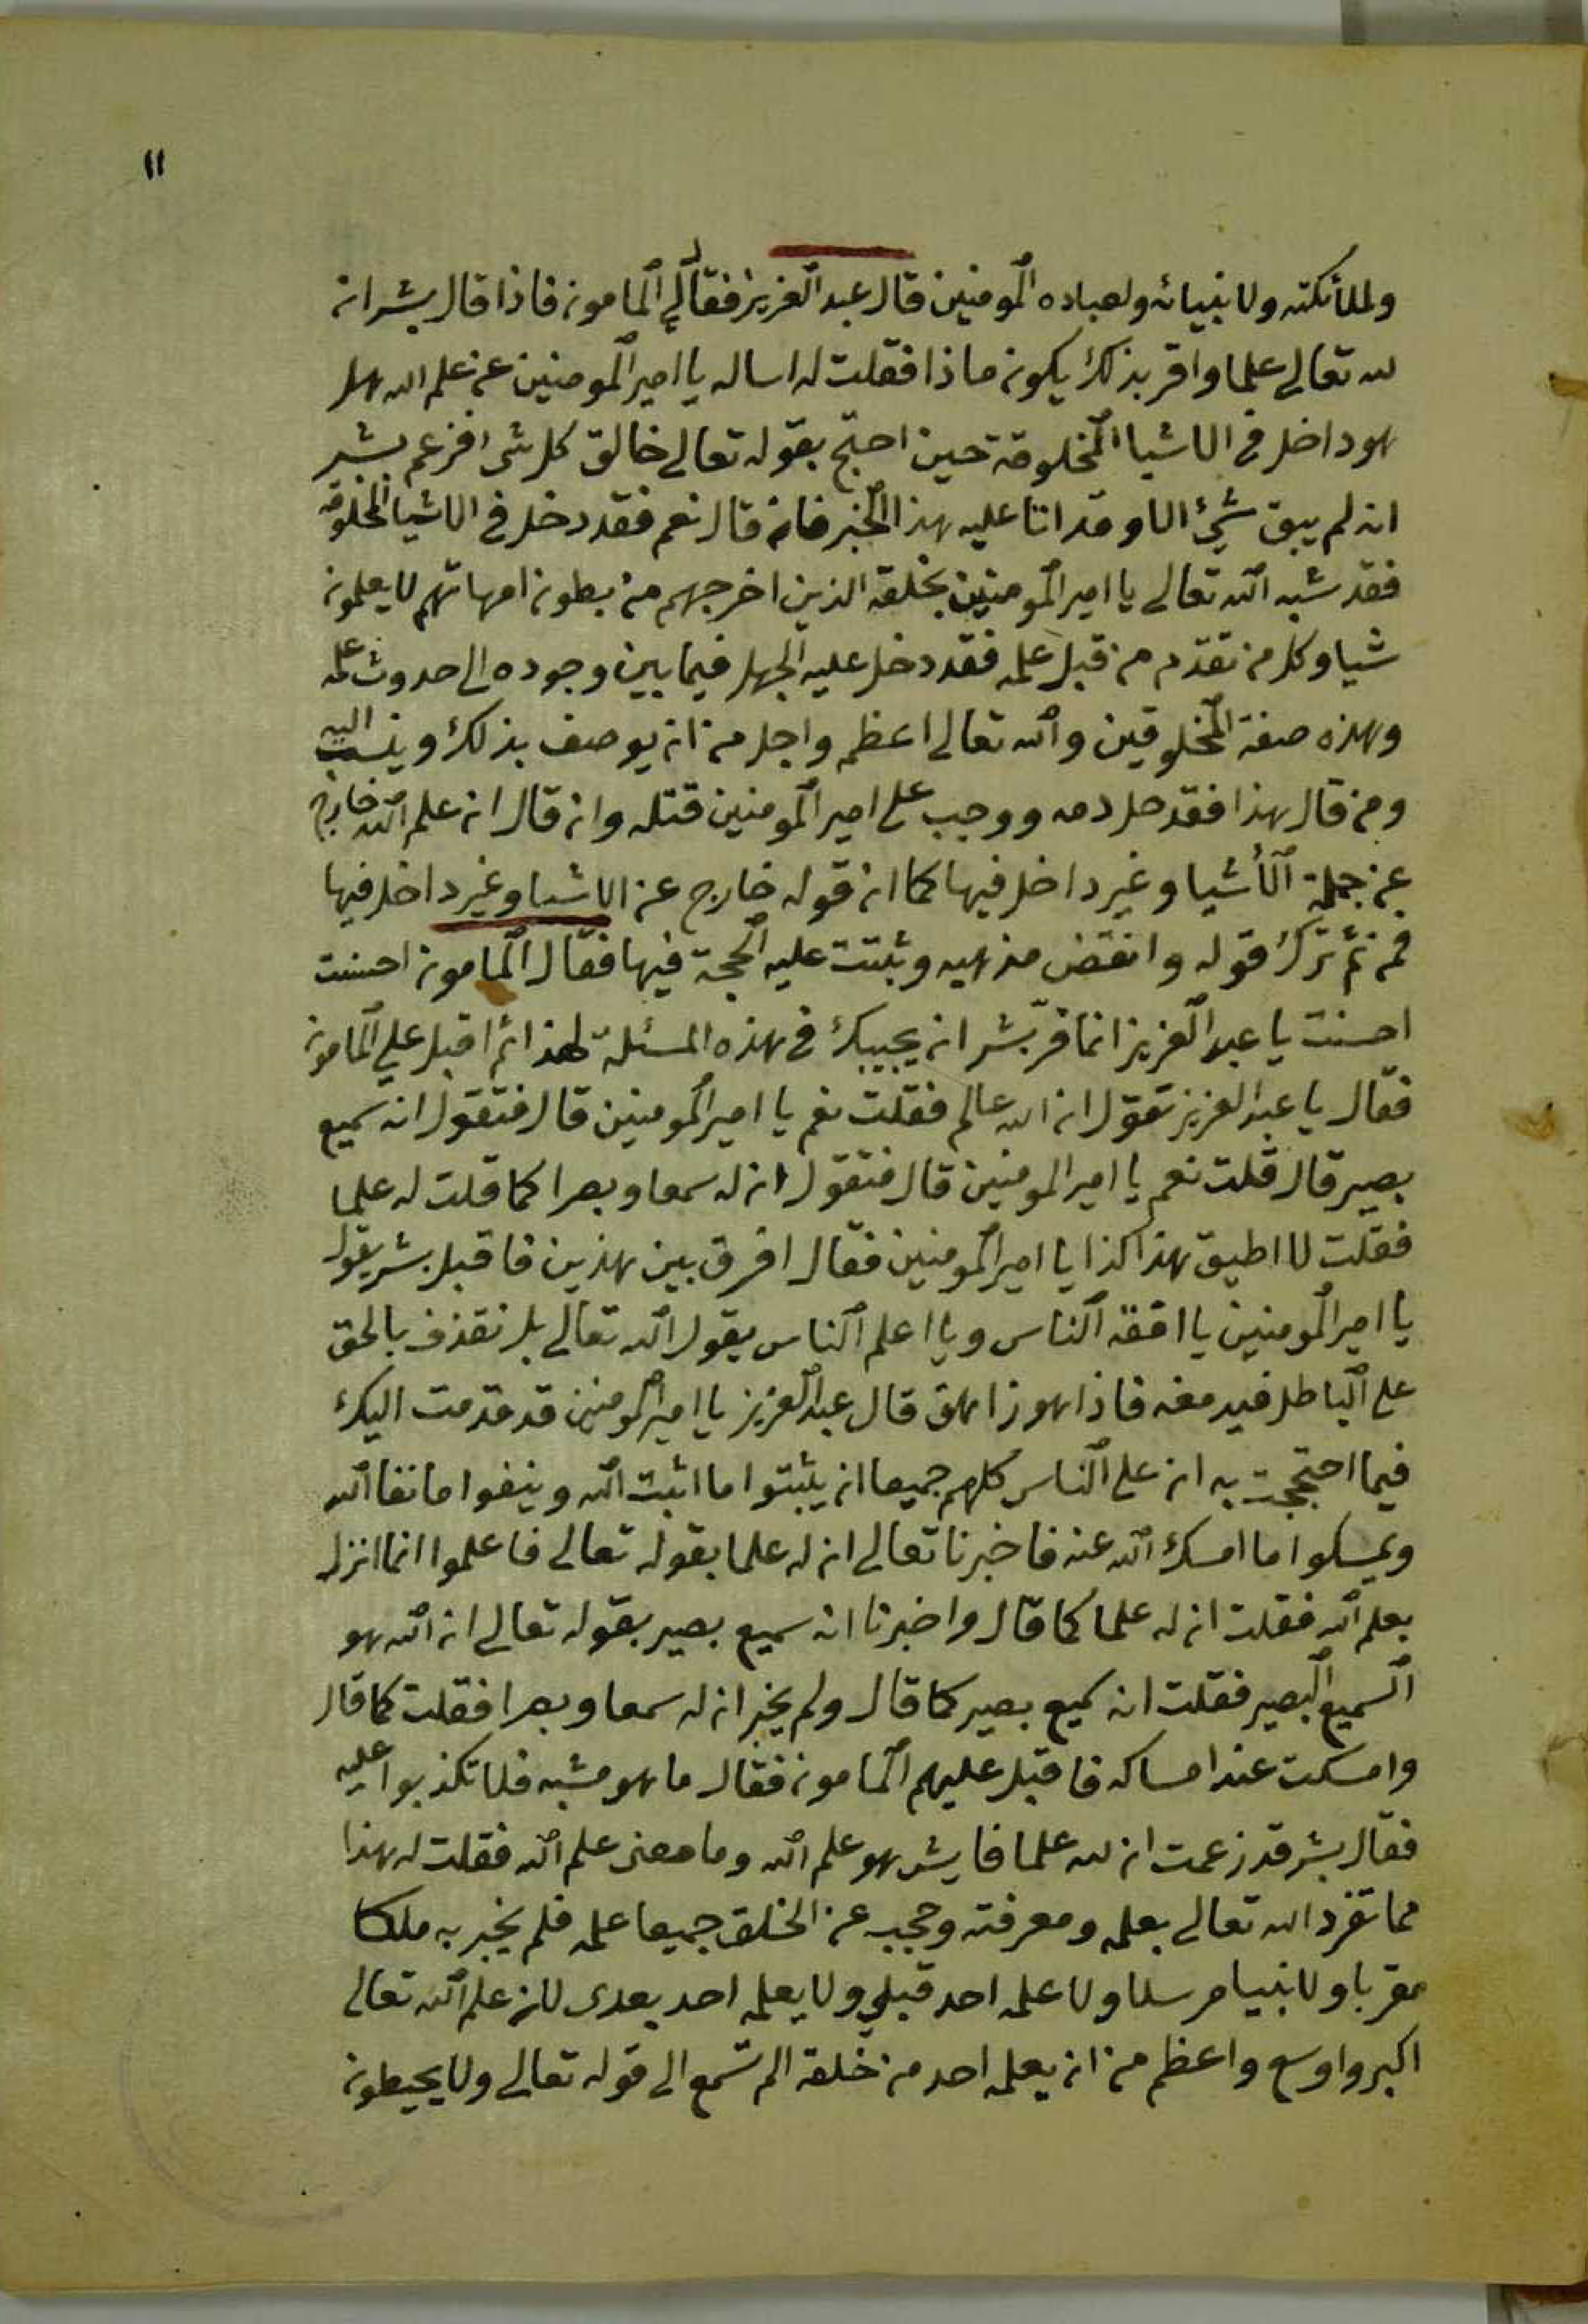 ١١
وللملائكته ولانبيائه ولعباده المومنين قال عبد العزيز فقال لي المامون فاذا قال بشر ان
لله تعالى علما واقر بذلك يكون ماذا فقلت له اساله يا امير المومنين عن علم الله هل
هو داخل في الاشيا المخلوقة حين احتج بقوله تعالى خالق كل شى افزعم بشر
انه لم يبق شئ الا وقد اتا عليه هذا الخبر فان قال نعم فقد دخل في الاشيا المخلوقه
فقد شبه الله تعالى يا امير المومنين بخلقه الذين اخرجهم من بطون امهاتهم لا يعلمون
شيا وكل من تقدم من قبل علمه فقد دخل عليه الجهل فيما بين وجوده الى حدوث علمه
وهذه صفة المخلوقين والله تعالى اعظم واجل من ان يوصف بذلك وينسب اليه
ومن قال هذا فقد حل دمه ووجب على امير المومنين قتله وان قال ان علم الله خارج
عن جملة الأشيا وغير داخل فيها كما ان قوله خارج عن الاشيا وغير داخل فيها
فمن ثم ترك قوله وانقض مذهبه وثبتت عليه الحجة فيها فقال المامون احسنت
احسنت يا عبد العزيز انما فر بشر ان يجيبك في هذه المسئلة لهذا ثم اقبل علي المامون
فقال يا عبد العزيز تقول ان الله عالم فقلت نعم يا امير المومنين قال فتقول انه سميع
بصير قال قلت نعم يا امير المومنين قال فتقول ان له سمعا وبصرا كما قلت له علما
فقلت لا اطيق هذا كذا يا امير المومنين فقال افرق بين هذين فاقبل بشر يقول
يا امير المومنين يا افقه الناس ويا اعلم الناس يقول الله تعالى بل نقذف بالحق
على الباطل فيدمغه فاذا هو زاهق قال عبد العزيز يا امير المومنين قد قدمت اليك
فيما احتججت به ان على الناس كلهم جميعا ان يثبتوا ما اثبت الله وينفوا ما نفا الله
ويمسكوا ما امسك الله عنه فاخبرنا تعالى ان له علما بقوله تعالى فاعلموا انما انزل
بعلم الله فقلت ان له علما كما قال واخبرنا انه سميع بصير بقوله تعالى ان الله هو
السميع البصير فقلت انه سميع بصير كما قال ولم يخبر ان له سمعا وبصرا فقلت كما قال
وامسكت عند امساكه فاقبل عليهم المامون فقال ما هو مشبه فلا تكذبوا عليه
فقال بشر قد زعمت ان لله علما فايش هو علم الله وما معنى علم الله فقلت له هذا
مما تفرد الله تعالى بعلمه ومعرفته وحجب عن الخلق جميعا علمه فلم يخبر به ملكا
مقربا ولا نبيا مرسلا ولا علمه احد قبلي ولا يعلمه احد بعدى لان علم الله تعالى
اكبر واوسع واعظم من ان يعلمه احد من خلقه الم تسمع الى قوله تعالى ولا يحيطون